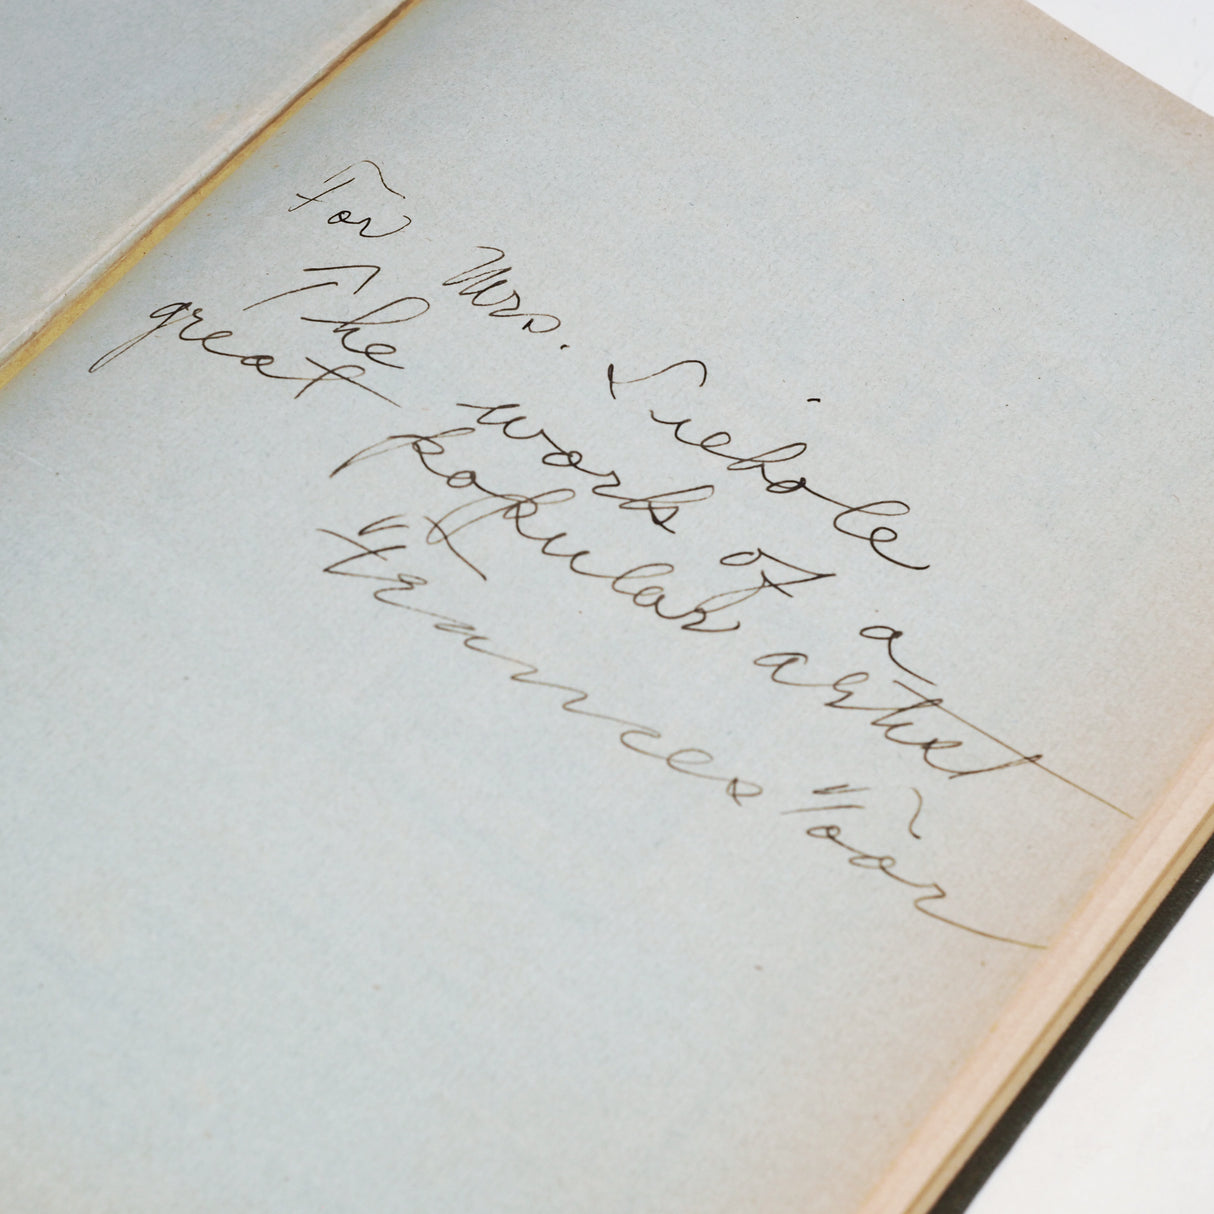 For Mrs. Siebole
The works of a
great popular artist
Frances Toor